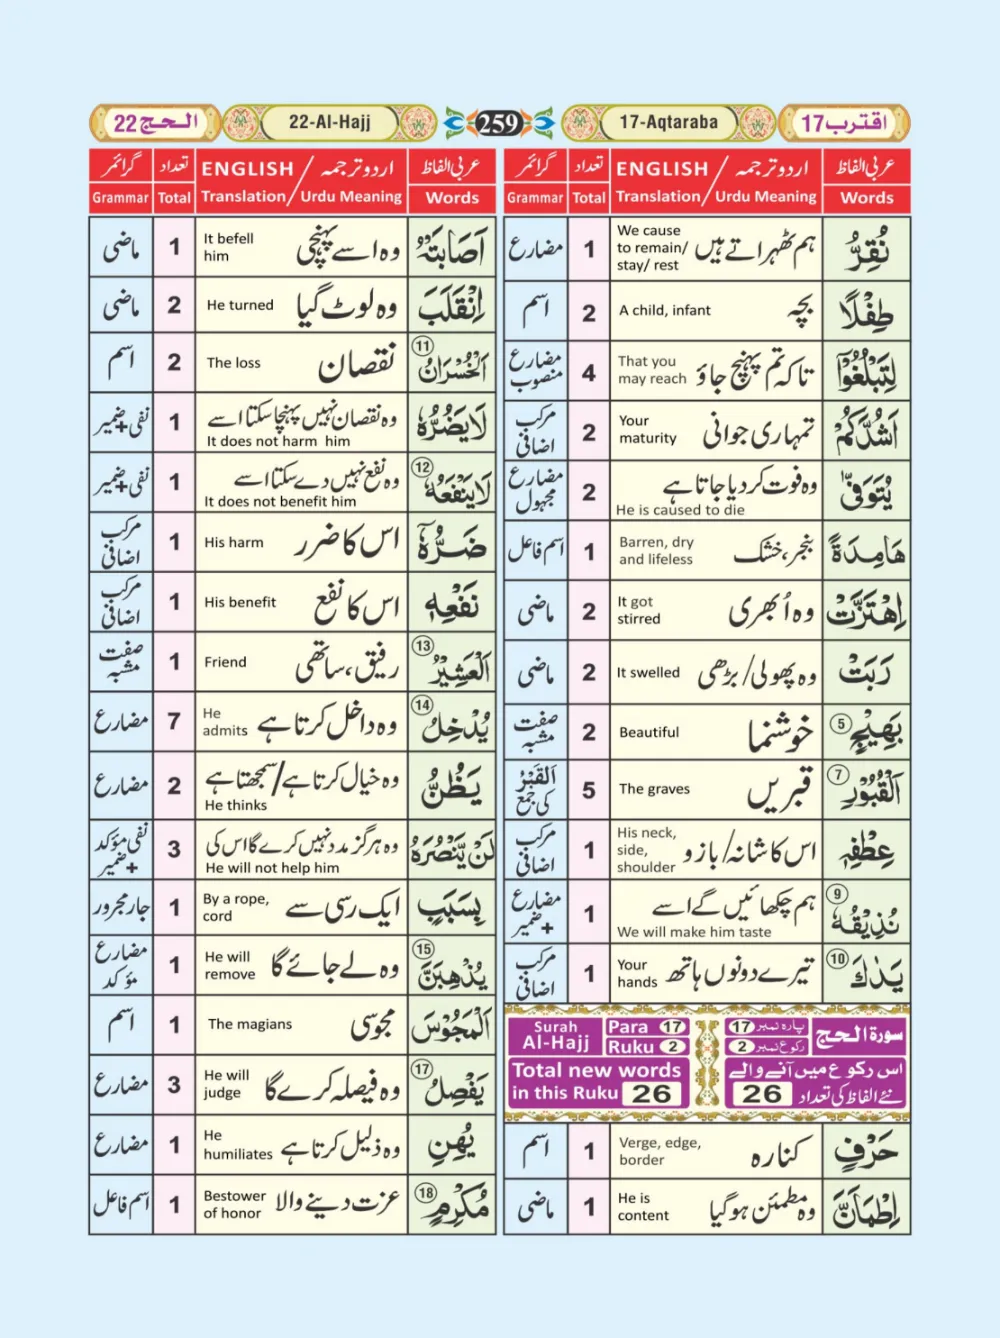 اقترب 17
17-Aqtaraba
259
22-Al-Hajj
الحج 22
عربی الفاظ اردو ترجمہ / ENGLISH تعداد گرائمر
Words Urdu Meaning / Translation Total Grammar
نُقِرُّ ہم ٹھہراتے ہیں We cause to remain/ stay/ rest 1 مضارع
طِفْلًا بچہ A child, infant 2 اسم
لِتَبْلُغُوْۤا تاکہ تم پہنچ جاؤ That you may reach 4 مضارع منصوب
اَشُدَّكُمْ تمہاری جوانی Your maturity 2 مرکب اضافی
يُتَوَفّٰى وہ فوت کر دیا جاتا ہے He is caused to die 2 مضارع مجہول
هَامِدَةً بنجر، خشک Barren, dry and lifeless 1 اسم فاعل
اِهْتَزَّتْ وہ اُبھری It got stirred 2 ماضی
رَبَتْ وہ پھولی/بڑھی It swelled 2 ماضی
بَهِيْجٍ 5 خوشنما Beautiful 2 صفت مشبہ
اَلْقُبُوْرِ 7 قبریں The graves 5 اَلْقَبْرُ کی جمع
عِطْفِهٖ اس کا شانہ/بازو His neck, side, shoulder 1 مرکب اضافی
نُذِيْقُهٗ 9 ہم چکھائیں گے اسے We will make him taste 1 مضارع + ضمیر
يَدٰكَ 10 تیرے دونوں ہاتھ Your hands 1 مرکب اضافی
سورة الحج پارہ نمبر 17 Para 17 Surah
رکوع نمبر 2 Ruku 2 Al-Hajj
اس رکوع میں آنے والے Total new words
نئے الفاظ کی تعداد 26 in this Ruku 26
حَرْفٍ کنارہ Verge, edge, border 1 اسم
اِطْمَاَنَّ وہ مطمئن ہوگیا He is content 1 ماضی
عربی الفاظ اردو ترجمہ / ENGLISH تعداد گرائمر
Words Urdu Meaning / Translation Total Grammar
اَصَابَتْهُ وہ اسے پہنچی It befell him 1 ماضی
اِنْقَلَبَ وہ لوٹ گیا He turned 2 ماضی
اَلْخُسْرَانُ 11 نقصان The loss 2 اسم
لَا يَضُرُّهٗ وہ نقصان نہیں پہنچا سکتا اسے It does not harm him 1 نفی+ضمیر
لَا يَنْفَعُهٗ 12 وہ نفع نہیں دے سکتا اسے It does not benefit him 1 نفی+ضمیر
ضَرُّهٗۤ اس کا ضرر His harm 1 مرکب اضافی
نَفْعِهٖ اس کا نفع His benefit 1 مرکب اضافی
اَلْعَشِيْرُ 13 رفیق، ساتھی Friend 1 صفت مشبہ
يُدْخِلُ 14 وہ داخل کرتا ہے He admits 7 مضارع
يَظُنُّ وہ خیال کرتا ہے/سمجھتا ہے He thinks 2 مضارع
لَنْ يَّنْصُرَهُ وہ ہرگز مدد نہیں کرے گا اس کی He will not help him 3 نفی مؤکد + ضمیر
بِسَبَبٍ ایک رسی سے By a rope, cord 1 جار مجرور
يُذْهِبَنَّ 15 وہ لے جائے گا He will remove 1 مضارع مؤکد
اَلْمَجُوْسَ مجوسی The magians 1 اسم
يَفْصِلُ 17 وہ فیصلہ کرے گا He will judge 3 مضارع
يُهِنِ وہ ذلیل کرتا ہے He humiliates 1 مضارع
مُكْرِمٍ 18 عزت دینے والا Bestower of honor 1 اسم فاعل